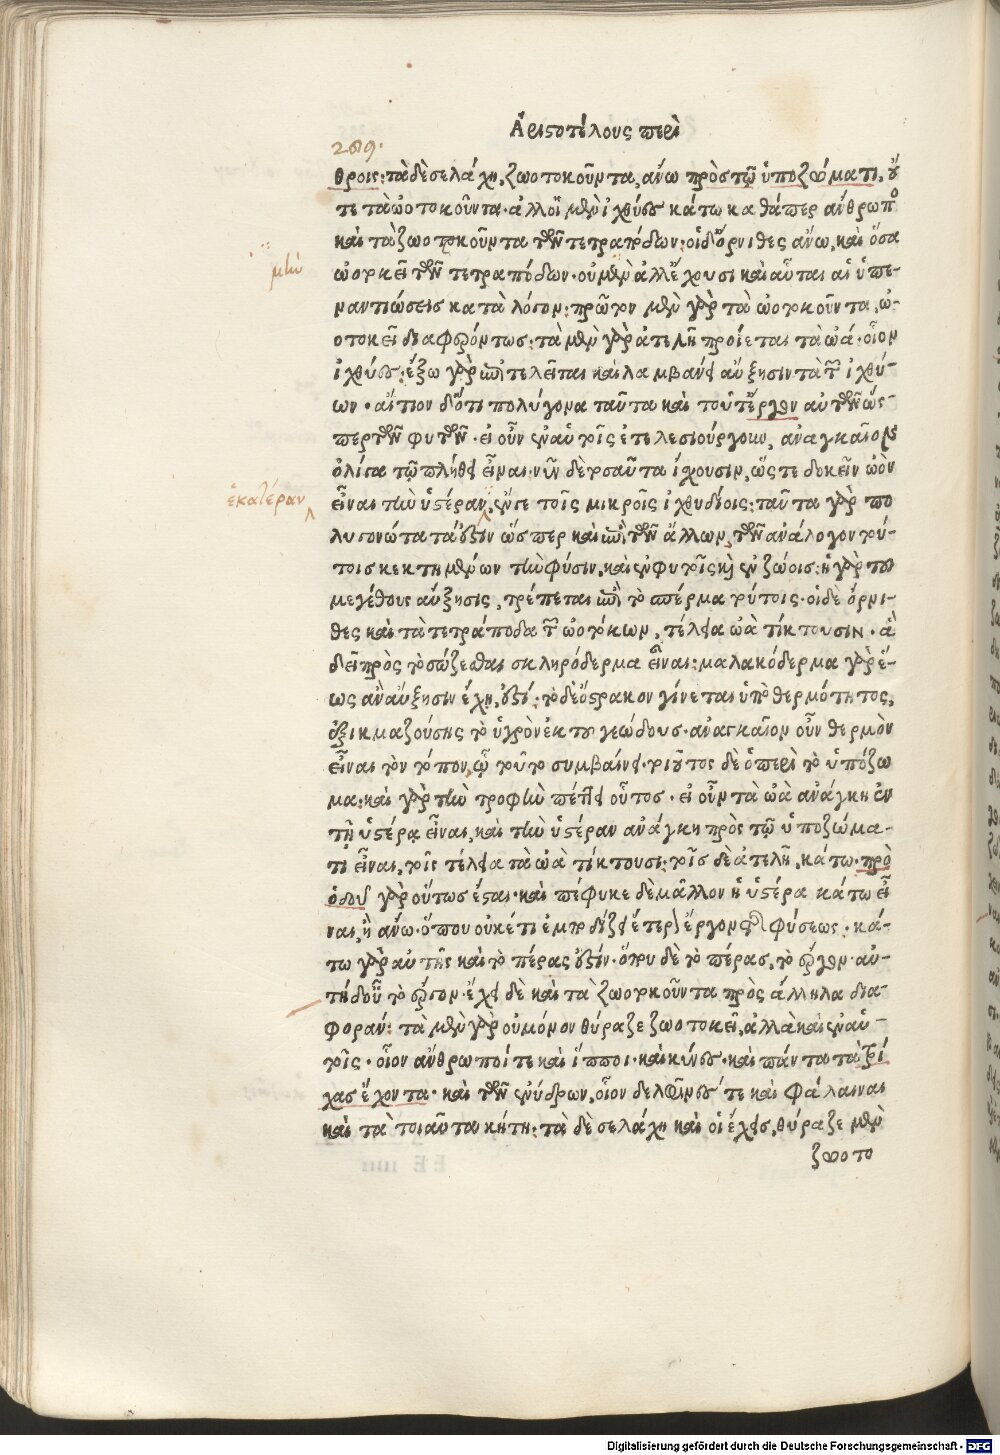 Ἀριστοτέλους περὶ
289.
θροις: τὰ δὲ σελάχη, ζωοτοκοῦντα, ἄνω πρὸς τῷ ὑποζώματι, οὔ
τε τὰ ὠοτοκοῦντα· ἀλλ' οἱ μὲν ἰχθύες κάτω καθάπερ ἄνθρωπος
καὶ τὰ ζωοτοκοῦντα τῶν τετραπόδων: οἱ δ' ὄρνιθες ἄνω, καὶ ὅσα
μὴν
ὠοτοκεῖ τῶν τετραπόδων· οὐ μὲν ἀλλ' ἔχουσι καὶ αὗται αἱ ὑπε-
ναντιώσεις κατὰ λόγον: πρῶτον μὲν γὰρ τὰ ὠοτοκοῦντα, ὠ-
οτοκεῖ διαφερόντως: τὰ μὲν γὰρ ἀτελῆ προίεται τὰ ὠά· οἷον
ἰχθύες: ἔξω γὰρ ἐπιτελεῖται καὶ λαμβάνει αὔξησιν τὰ τῶν ἰχθύ-
ων· αἴτιον δ' ὅτι πολύγονα ταῦτα καὶ τοῦτ' ἔργον αὐτῶν ὥς-
περ τῶν φυτῶν· εἰ οὖν ἐν αὑτοῖς ἐτελεσιούργουν, ἀναγκαῖον
ὀλίγα τῷ πλήθει εἶναι· νῦν δὲ τοσαῦτα ἴσχουσιν, ὥςτε δοκεῖν ὠὸν
ἑκατέραν
εἶναι τὴν ὑστέραν, ἔν γε τοῖς μικροῖς ἰχθυδίοις: ταῦτα γὰρ πο
λυγονώτατά ἐστιν ὥσπερ καὶ ἐπὶ τῶν ἄλλων, τῶν ἀνάλογον τού-
τοις κεκτημένων τὴν φύσιν, καὶ ἐν φυτοῖς καὶ ἐν ζώοις: ἡ γὰρ τοῦ
μεγέθους αὔξησις, τρέπεται ἐπὶ τὸ σπέρμα τούτοις· οἱ δὲ ὄρνι-
θες καὶ τὰ τετράποδα τῶν ὠοτόκων, τέλεια ὠὰ τίκτουσιν· ἃ
δεῖ πρὸς τὸ σώζεσθαι σκληρόδερμα εἶναι: μαλακόδερμα γὰρ ἕ-
ως ἂν αὔξησιν ἔχῃ, ἐστί· τὸ δὲ ὄστρακον γίνεται ὑπὸ θερμότητος,
ἐξικμαζούσης τὸ ὑγρὸν ἐκ τοῦ γεώδους· ἀναγκαῖον οὖν θερμὸν
εἶναι τὸν τόπον, ᾧ τοῦτο συμβαίνει· τοιοῦτος δὲ ὁ περὶ τὸ ὑπόζω
μα: καὶ γὰρ τὴν τροφὴν πέττει οὗτος· εἰ οὖν τὰ ὠὰ ἀνάγκη ἐν
τῇ ὑστέρᾳ εἶναι, καὶ τὴν ὑστέραν ἀνάγκη πρὸς τῷ ὑποζώμα-
τι εἶναι, τοῖς τέλεια τὰ ὠὰ τίκτουσι: τοῖς δὲ ἀτελῆ, κάτω· πρὸ
ὁδοῦ γὰρ οὕτως ἔσται· καὶ πέφυκε δὲ μᾶλλον ἡ ὑστέρα κάτω εἶ
ναι, ἢ ἄνω· ὅπου οὐκέτι ἐμποδίζει ἕτερον ἔργον τῆς φύσεως· κά-
τω γὰρ αὐτῆς καὶ τὸ πέρας ἐστίν· ὅπου δὲ τὸ πέρας, τὸ ἔργον· αὐ-
τὴ δ' οὗ τὸ ἔργον· ἔχει δὲ καὶ τὰ ζωοτοκοῦντα πρὸς ἄλληλα δια-
φοράν: τὰ μὲν γὰρ οὐ μόνον θύραζε ζωοτοκεῖ, ἀλλὰ καὶ ἐν αὑ-
τοῖς· οἷον ἄνθρωποί τε καὶ ἵπποι· καὶ κύνες· καὶ πάντα τὰ τρί
χας ἔχοντα· καὶ τῶν ἐνύδρων, οἷον δελφῖνές τε καὶ φάλαιναι
καὶ τὰ τοιαῦτα κήτη: τὰ δὲ σελάχη καὶ οἱ ἔχεις, θύραζε μὲν
ζωοτο
Digitalisierung gefördert durch die Deutsche Forschungsgemeinschaft - DFG